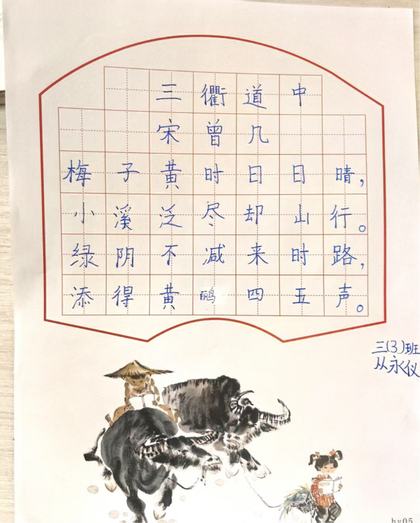 三衢道中
宋 曾几
梅子黄时日日晴，
小溪泛尽却山行。
绿阴不减来时路，
添得黄鹂四五声。
三(3)班
从永仪